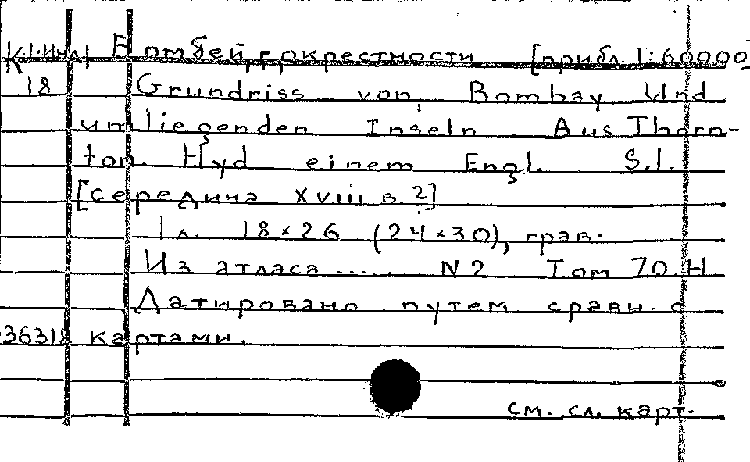 К 1-Инд Бомбей, окрестности [прибл. 1:60000
18 Grundriss von Bombay Und
umliegenden Inseln Aus Thorn-
ton Hyd einem Engl. S.l.
[середина XVIII в.?]
1 л. 18×26 (24×30), грав.
Из атласа ..... N2 Том 70 Н
Датировано путем сравн. с
36318 картами.
см. сл. карт.